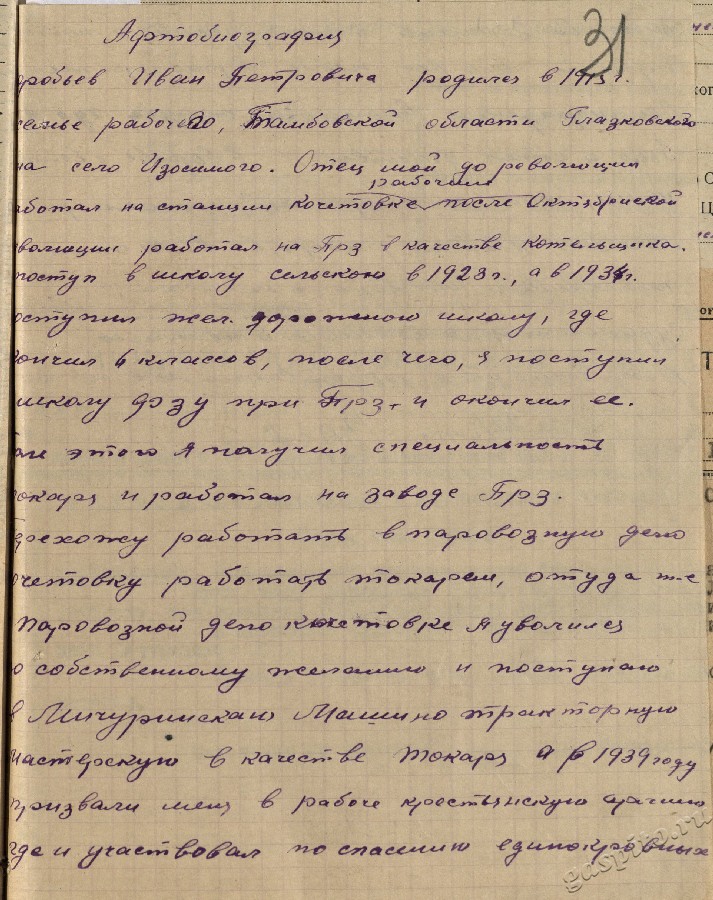 31
Афтобиография
оробьев Иван Петровича родился в 1913 г.
семье рабочего, Тамбовской области Глазковского
на село Изосимого. Отец мой до революции
рабочим
аботал на станции Кочетовке после Октябрьской
волюции работал на Прз в качестве котельщика.
поступ в школу сельскою в 1923 г., а в 1931 г.
оступил жел. дорожною школу, где
ончил 6 классов, после чего, я поступил
школу фзу при Прз и окончил ее.
сле этого я получил специальность
окаря и работал на заводе Прз.
ерехожу работать в паровозную депо
очетовку работать токарем, отуда же
Паровозной депо кочетовке я уволился
о собственному желанию и поступаю
в Мичуринскаю Машино тракторную
мастерскую в качестве токаря а в 1939 году
призвали меня в рабоче крестьянскую армию
где и участвовал по спасению единокровных
gaspito.ru